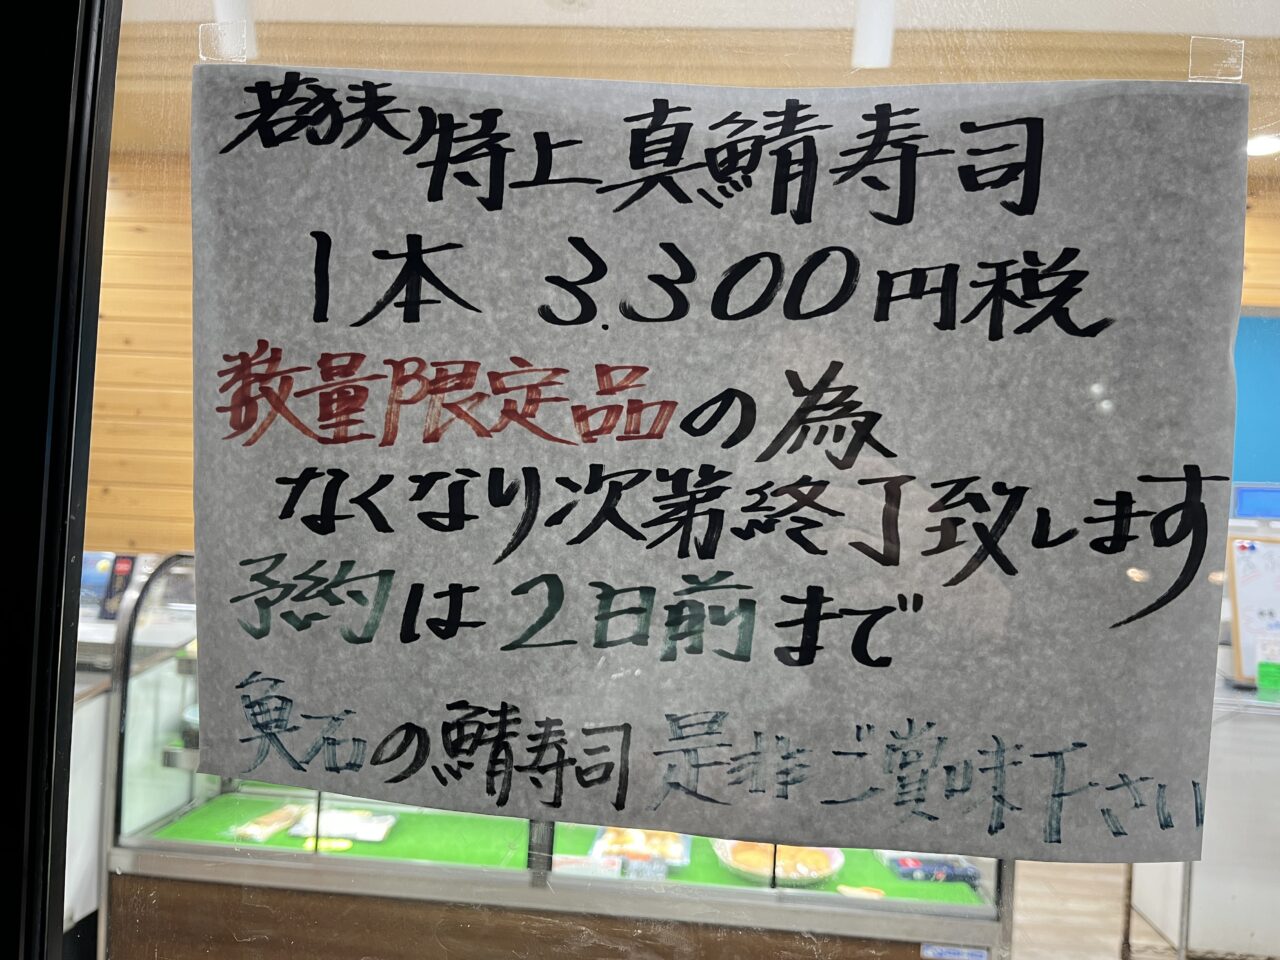 若狭 特上真鯖寿司
1本 3.300円税
数量限定品の為
なくなり次第終了致します
予約は2日前まで
魚石の鯖寿司 是非ご賞味下さい